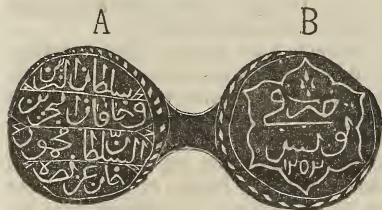 A
سلطان البرين
وخاقان البحرين
السلطان محمود
خان عز نصره
B
ضرب في
تونس